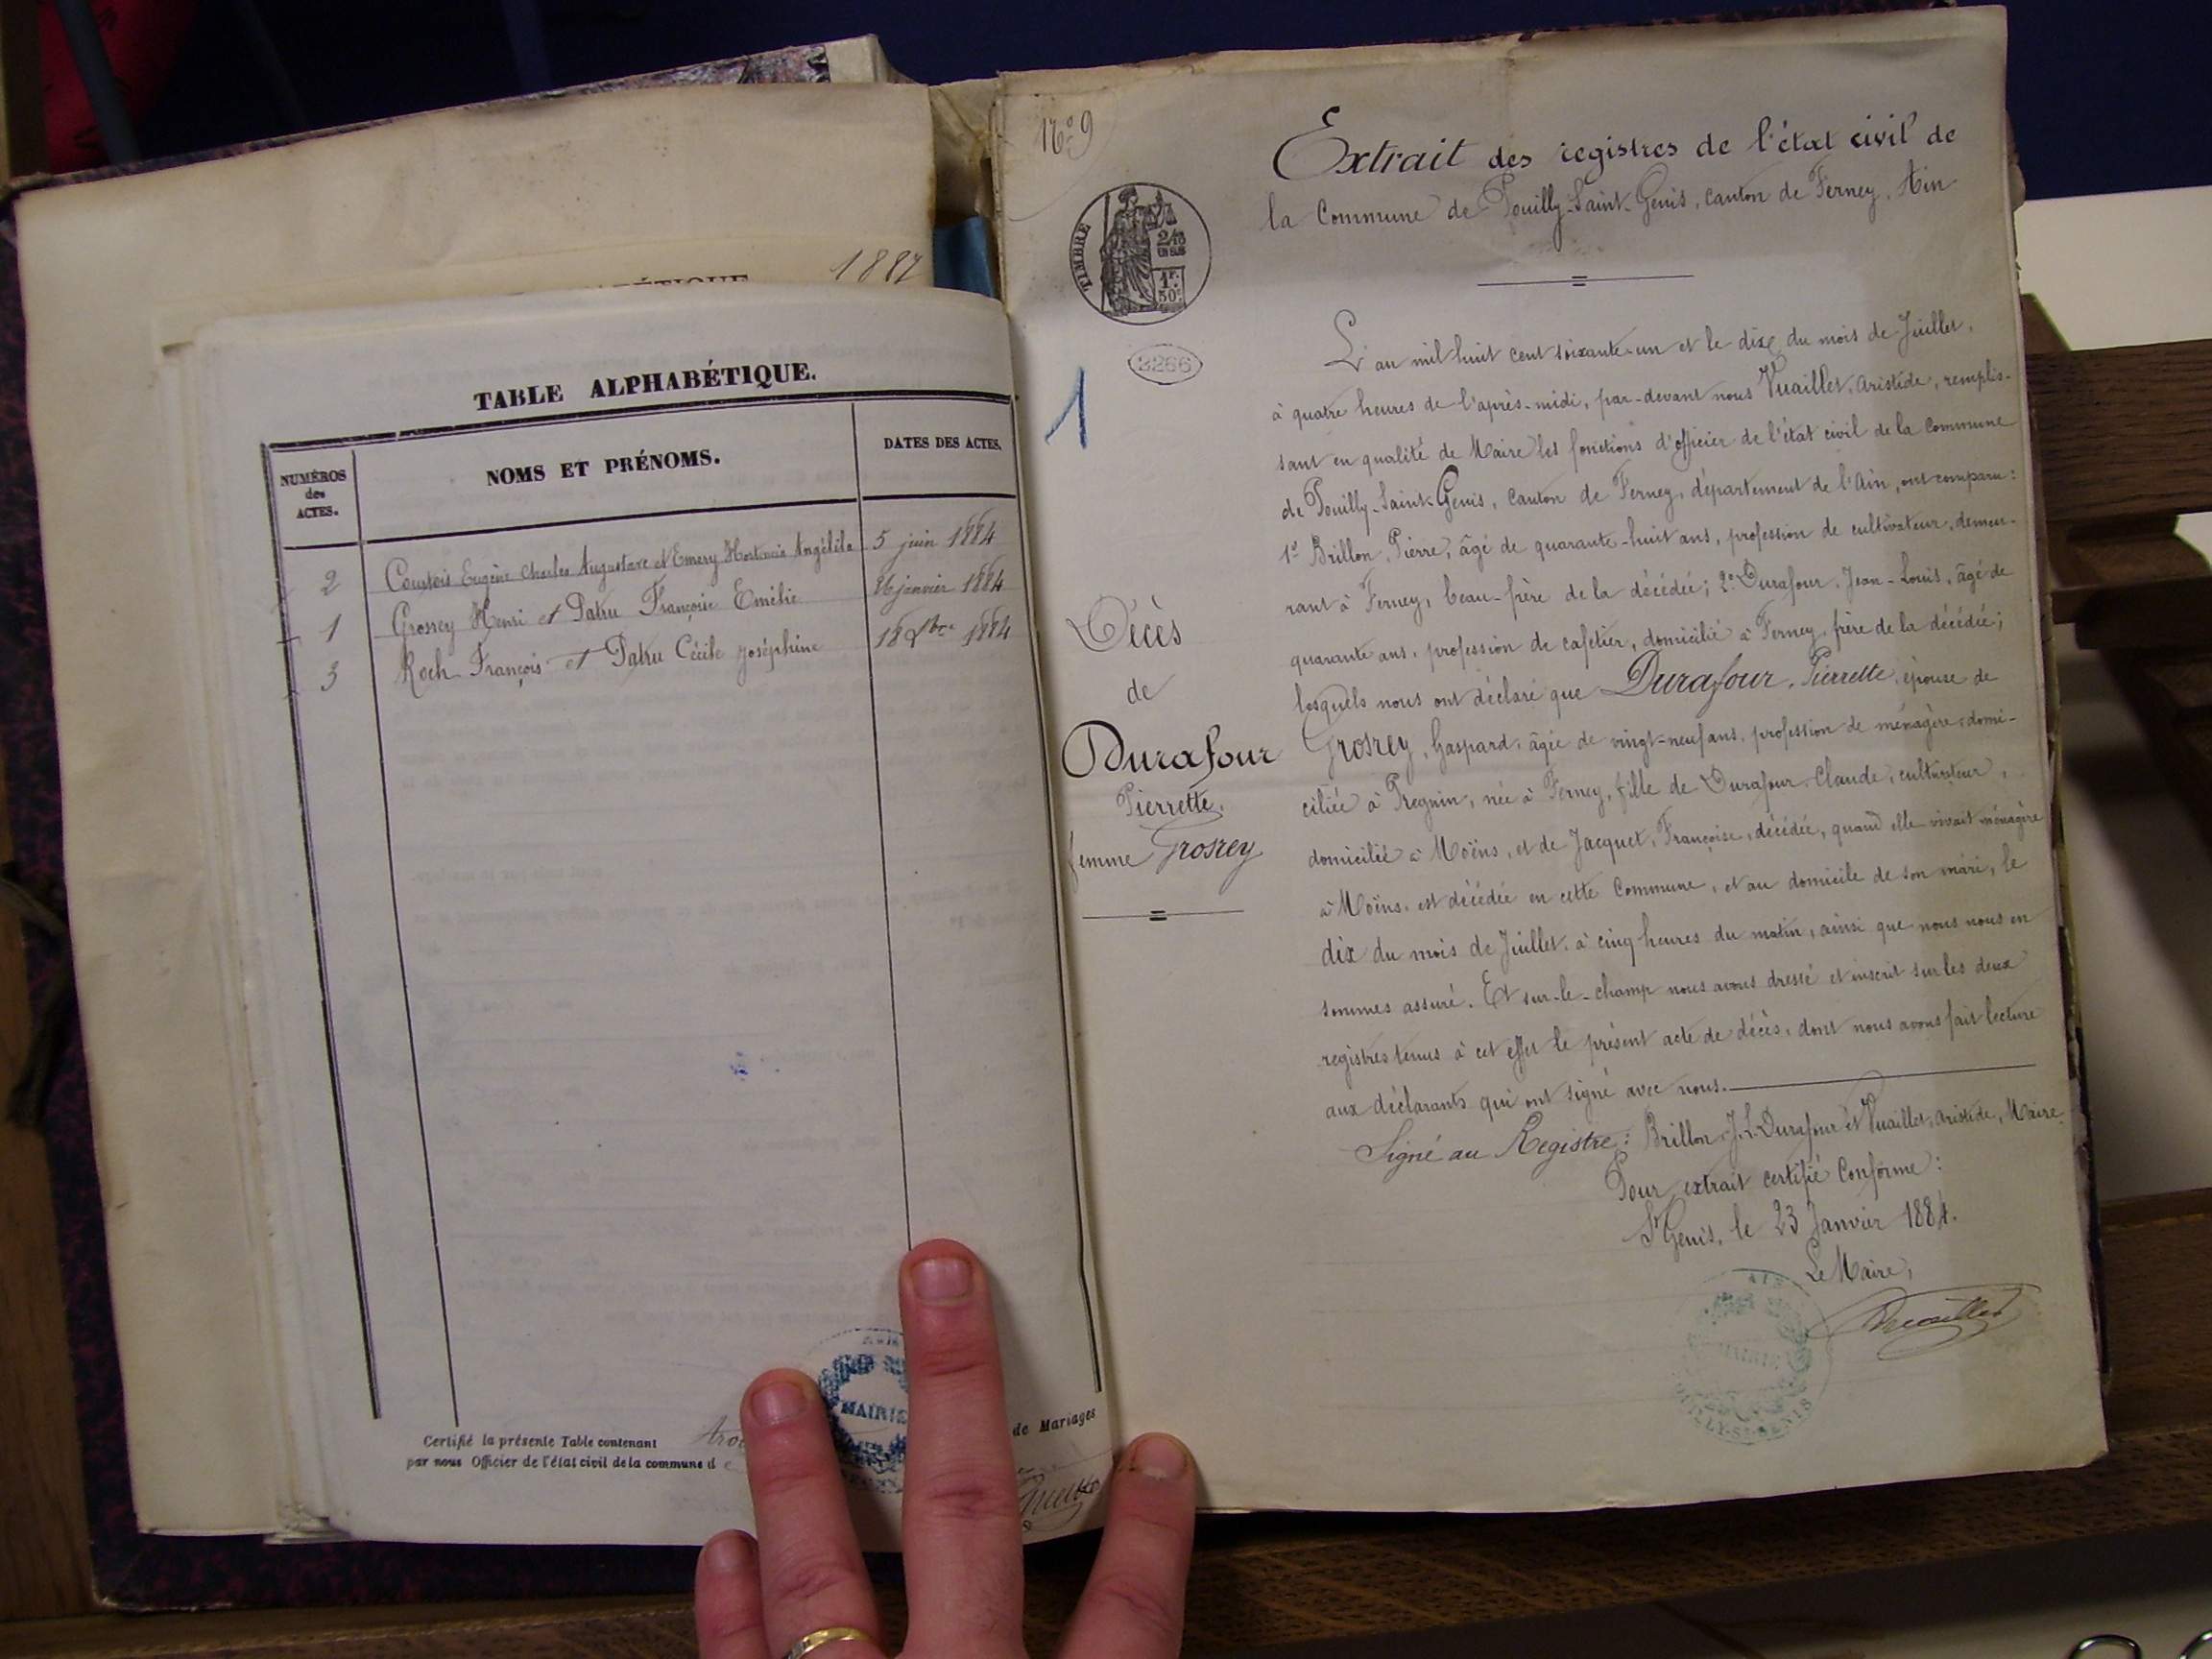 1887
TABLE ALPHABÉTIQUE.
NUMÉROS des ACTES.
NOMS ET PRÉNOMS.
DATES DES ACTES.
2 Courtois Eugène Charles Augustave et Emery Hortensia Angélila 5 juin 1884
1 Grosrey Henri et Patru Françoise Emélie 26 janvier 1884
3 Roch François et Patru Cécile Joséphine 18 9bre 1884
MAIRIE
Certifié la présente Table contenant de Mariages
par nous Officier de l'état civil de la commune d
N° 9
Extrait des registres de l'état civil de
la Commune de Pouilly-Saint-Genis, canton de Ferney, Ain
TIMBRE
1F. 50c
3266
1
L'an mil huit cent soixante-un et le dix du mois de Juillet,
à quatre heures de l'après-midi, par-devant nous Vuaillet, Aristide, remplis-
sant en qualité de Maire les fonctions d'officier de l'état civil de la Commune
de Pouilly-Saint-Genis, Canton de Ferney, département de l'Ain, ont comparu:
1° Brillon, Pierre, âgé de quarante-huit ans, profession de cultivateur, demeu-
rant à Ferney, beau-frère de la décédée; 2° Durafour, Jean-Louis, âgé de
quarante ans, profession de cafetier, domicilié à Ferney, frère de la décédée;
lesquels nous ont déclaré que Durafour, Pierrette, épouse de
Grosrey, Gaspard, âgée de vingt-neuf ans, profession de ménagère, domi-
ciliée à Pregnin, née à Ferney, fille de Durafour, Claude, cultivateur,
domicilié à Moëns, et de Jacquet, Françoise, décédée, quand elle vivait ménagère
à Moëns, est décédée en cette Commune, et au domicile de son mari, le
dix du mois de Juillet, à cinq heures du matin, ainsi que nous nous en
sommes assuré. Et sur-le-champ nous avons dressé et inscrit sur les deux
registres tenus à cet effet le présent acte de décès, dont nous avons fait lecture
aux déclarants qui ont signé avec nous.
Signé au Registre: Brillon, J.L. Durafour et Vuaillet, Aristide, Maire.
Pour extrait certifié Conforme:
St Genis, le 23 Janvier 1884.
Le Maire,
Vuaillet
MAIRIE
Décès
de
Durafour
Pierrette,
femme Grosrey